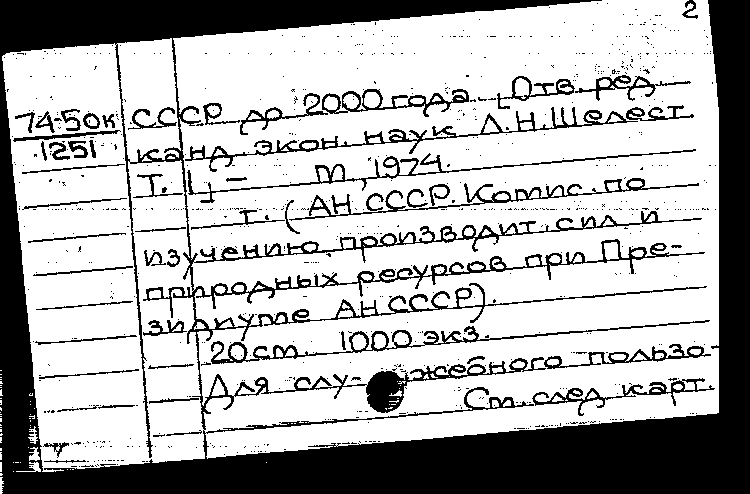 2
74-50к СССР до 2000 года. [Отв. ред.
1251 канд. экон. наук Л.Н. Шелест.
Т. 1] – М., 1974.
т. (АН СССР. Комис. по
изучению производит. сил и
природных ресурсов при Пре-
зидиуме АН СССР).
20 см. 1000 экз.
Для слу- жебного пользо-
См. след. карт.